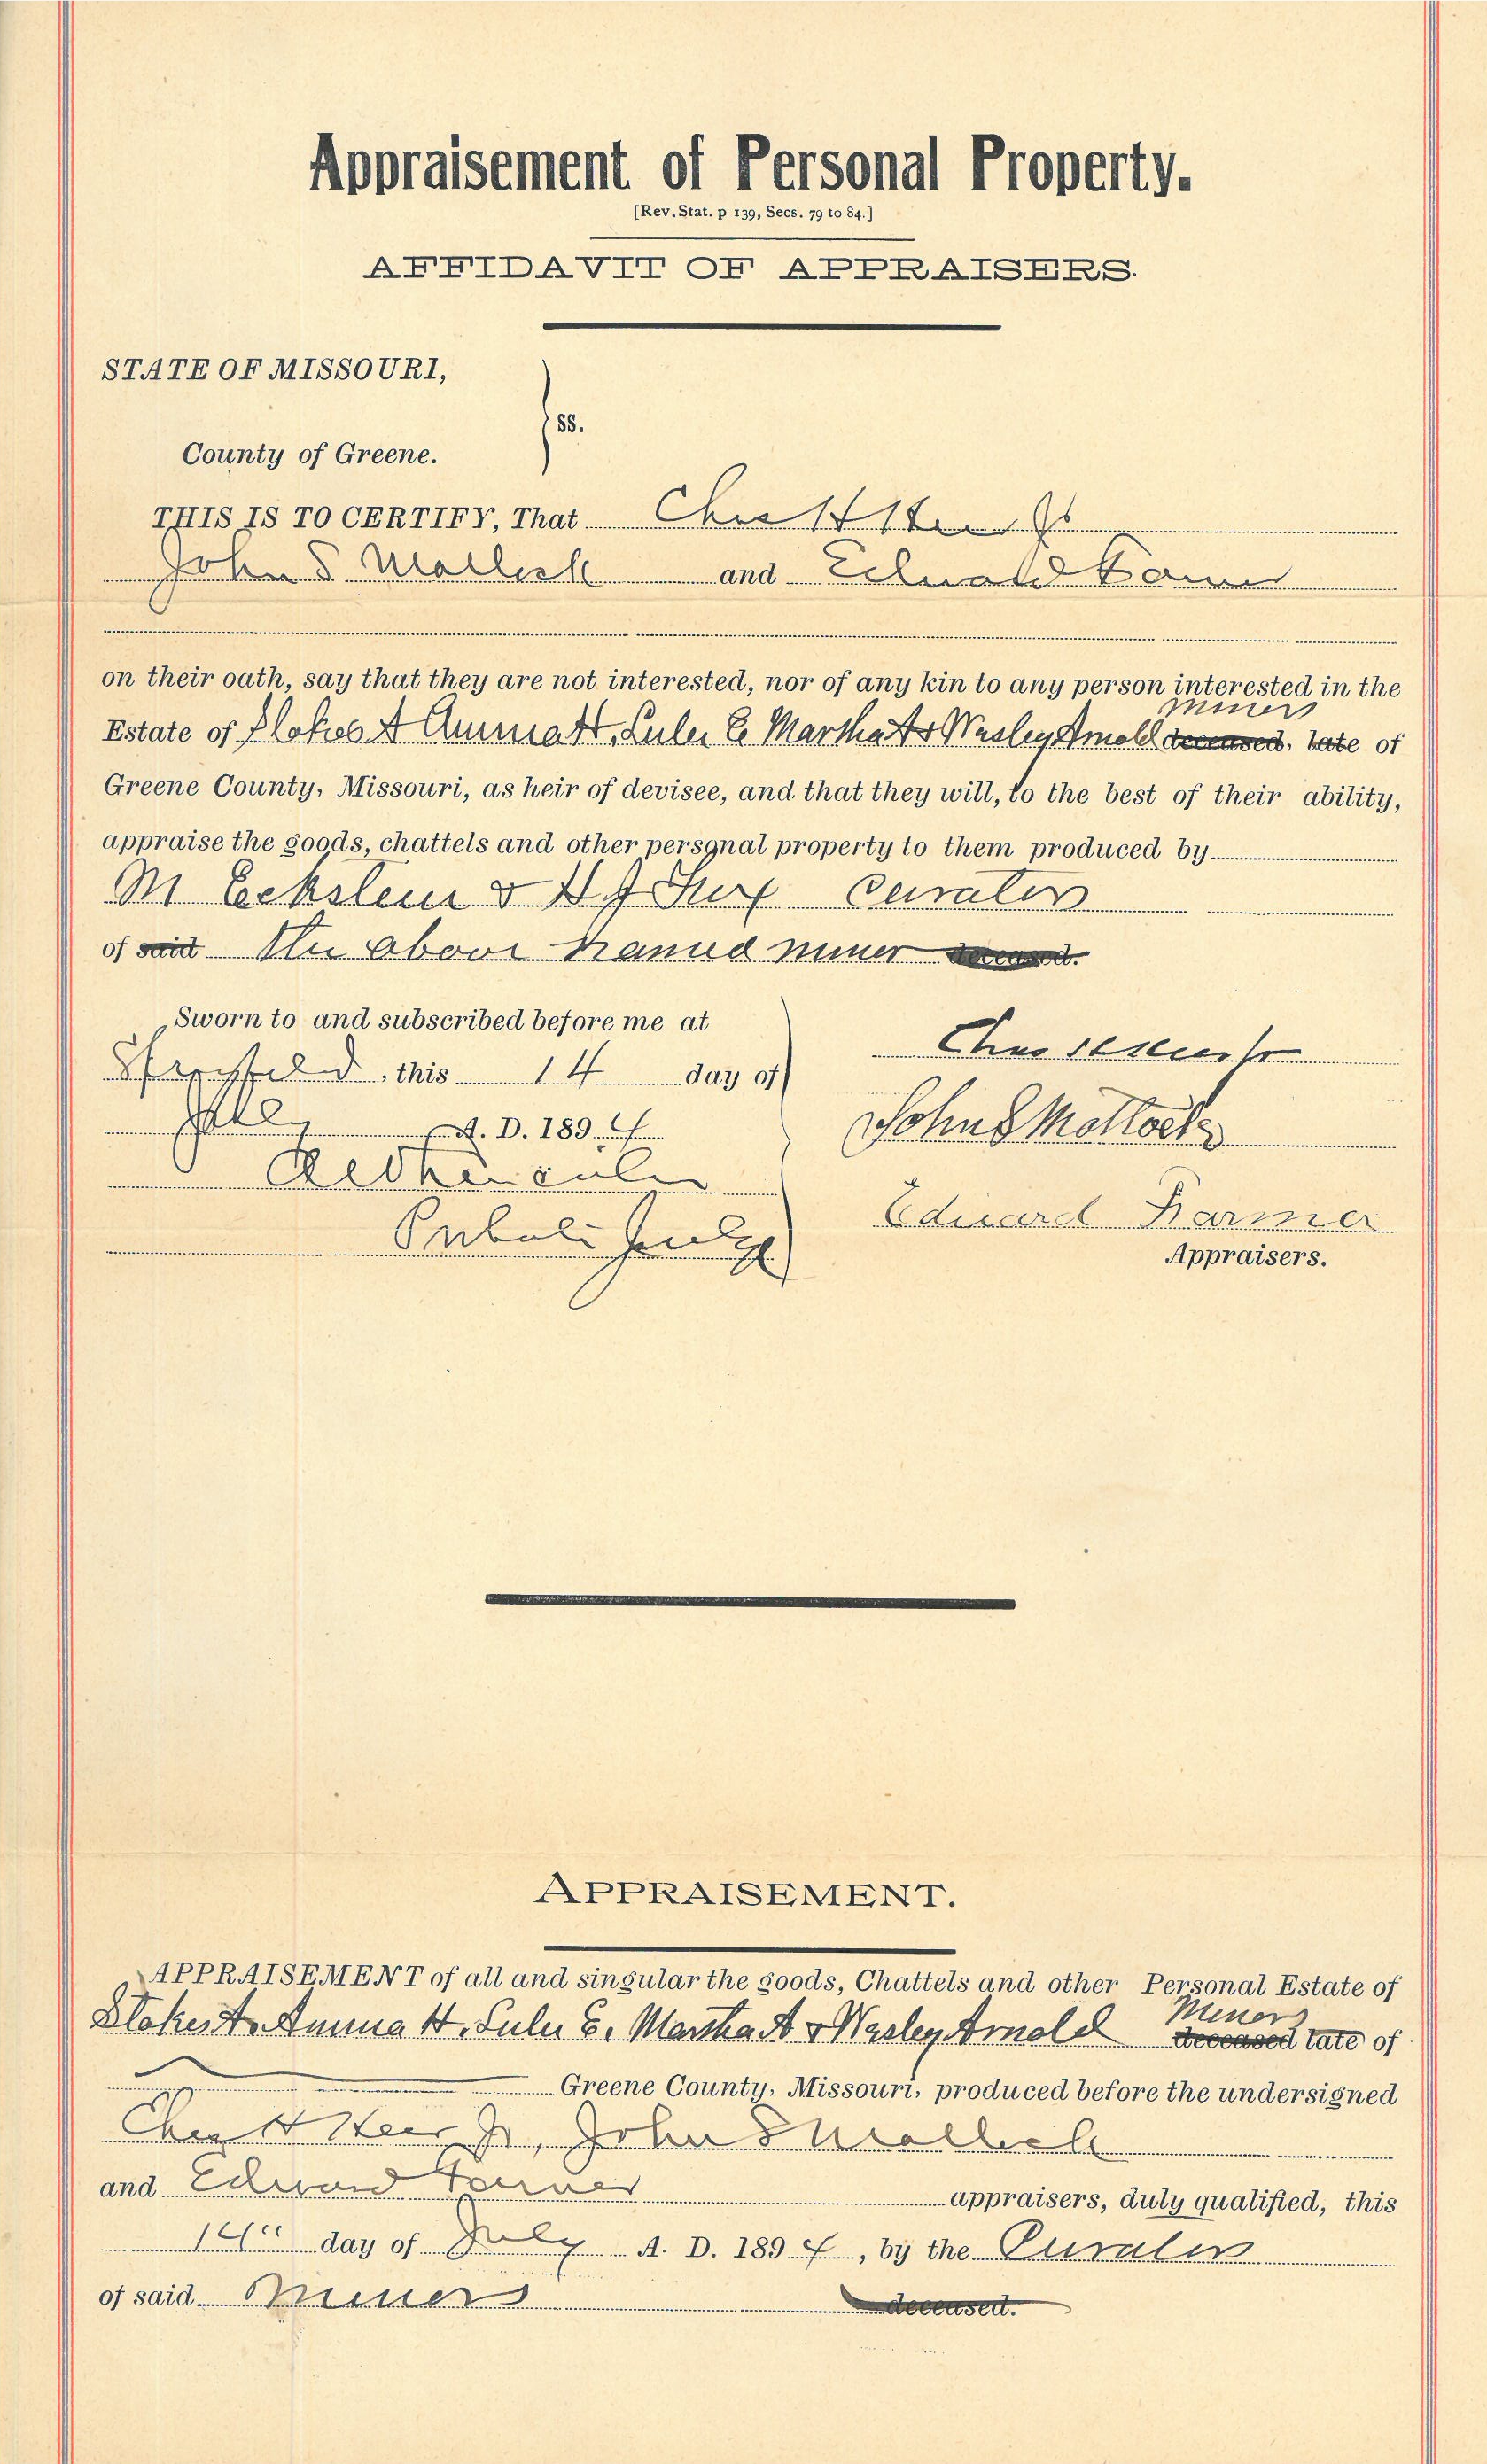 Appraisement of Personal Property.
[Rev. Stat. p 139, Secs. 79 to 84.]
AFFIDAVIT OF APPRAISERS.
STATE OF MISSOURI,
ss.
County of Greene.
THIS IS TO CERTIFY, That Chas H Heer Jr
John S Mollock and Edward Farmer
on their oath, say that they are not interested, nor of any kin to any person interested in the
minors
Estate of Stokes A Amma H, Lulu E Martha A & Wesley Arnold deceased, late of
Greene County, Missouri, as heir of devisee, and that they will, to the best of their ability,
appraise the goods, chattels and other personal property to them produced by
M Eckstein & curator
of said The above named minor deceased.
Sworn to and subscribed before me at
Springfield, this 14 day of
July A. D. 1894
Probate Judge
Chas H Heer Jr
John S Mollock
Edward Farmer
Appraisers.
APPRAISEMENT.
APPRAISEMENT of all and singular the goods, Chattels and other Personal Estate of
Minors
Stokes A. Amma H. Lulu E. Martha A & Wesley Arnold deceased late of
Greene County, Missouri, produced before the undersigned
Chas H Heer Jr, John S Mollock
and Edward Farmer appraisers, duly qualified, this
14" day of July A. D. 1894, by the Curator
of said minors deceased.